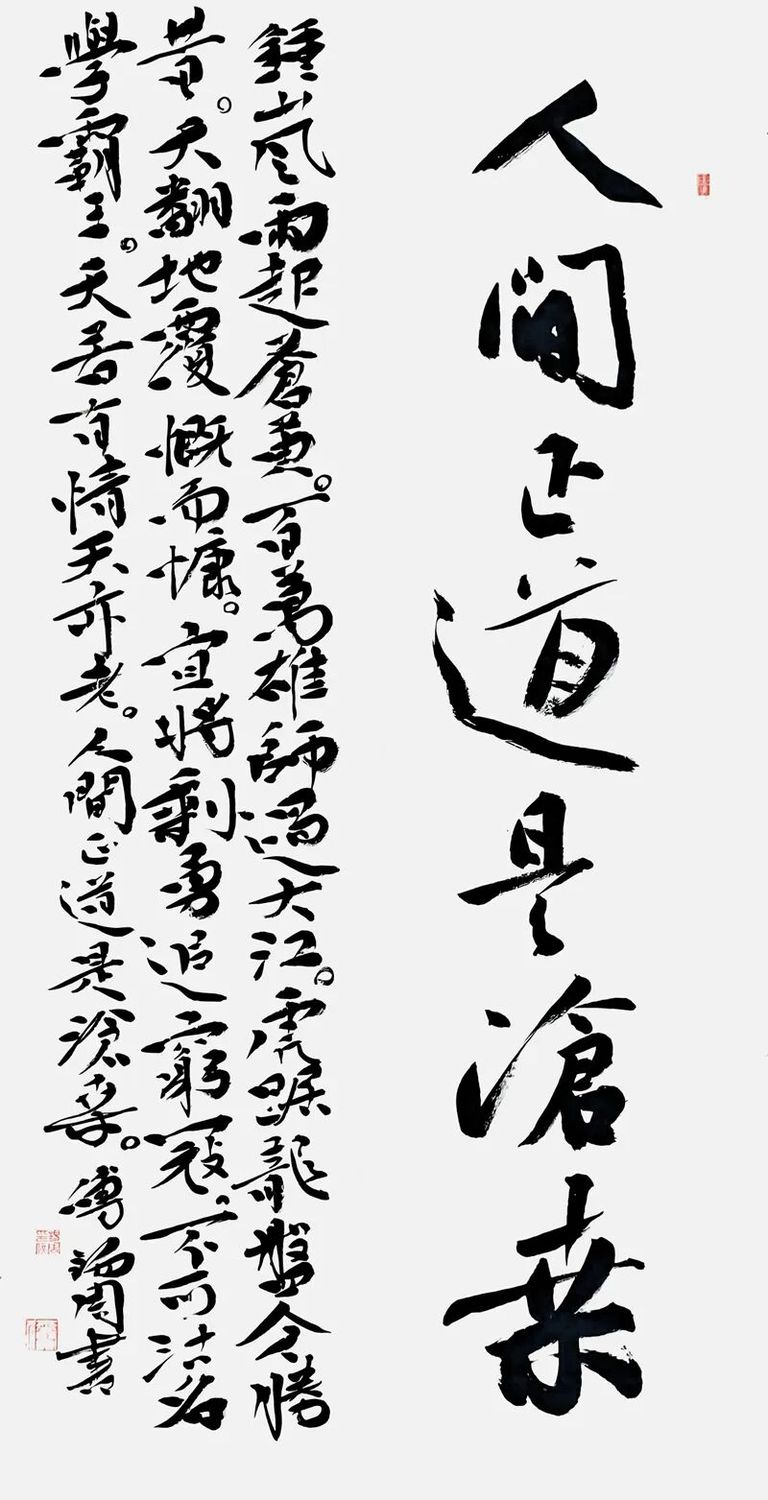 人間正道是滄桑
鍾山風雨起蒼黃。百萬雄師過大江。虎踞龍盤今勝
昔。天翻地覆慨而慷。宜將剩勇追窮寇。不可沽名
學霸王。天若有情天亦老。人間正道是滄桑。傅周書